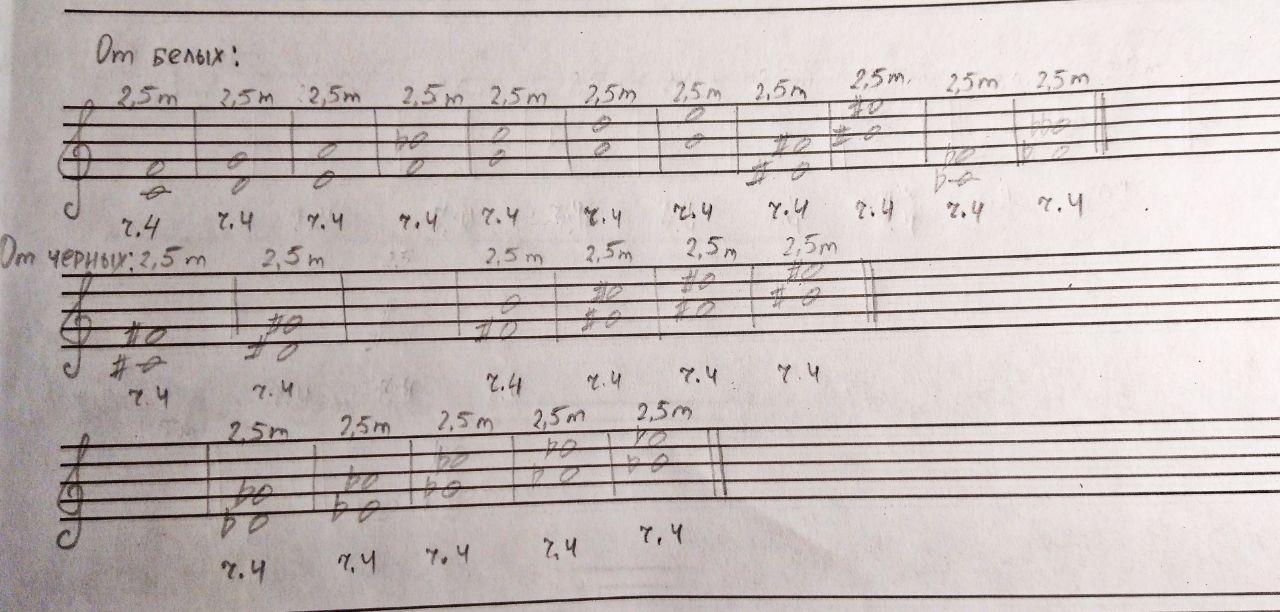 От белых:
2,5т 2,5т 2,5т 2,5т 2,5т 2,5т 2,5т 2,5т 2,5т 2,5т 2,5т
ч.4 ч.4 ч.4 ч.4 ч.4 ч.4 ч.4 ч.4 ч.4 ч.4 ч.4
От черных: 2,5т 2,5т 2,5т 2,5т 2,5т 2,5т
ч.4 ч.4 ч.4 ч.4 ч.4 ч.4
2,5т 2,5т 2,5т 2,5т 2,5т
ч.4 ч.4 ч.4 ч.4 ч.4